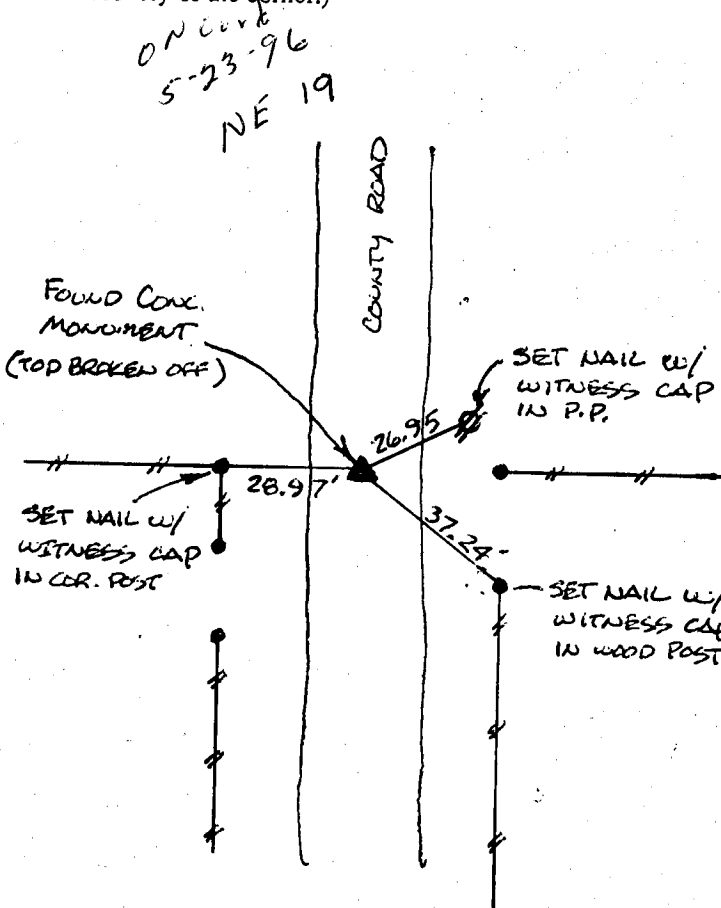 y of the corner.)
ON
5-23-96
NE 19
COUNTY ROAD
FOUND CONC.
MONUMENT
(TOP BROKEN OFF)
SET NAIL W/
WITNESS CAP
IN P.P.
26.95
28.97'
37.24
SET NAIL W/
WITNESS CAP
IN COR. POST
SET NAIL W/
WITNESS CAP
IN WOOD POST